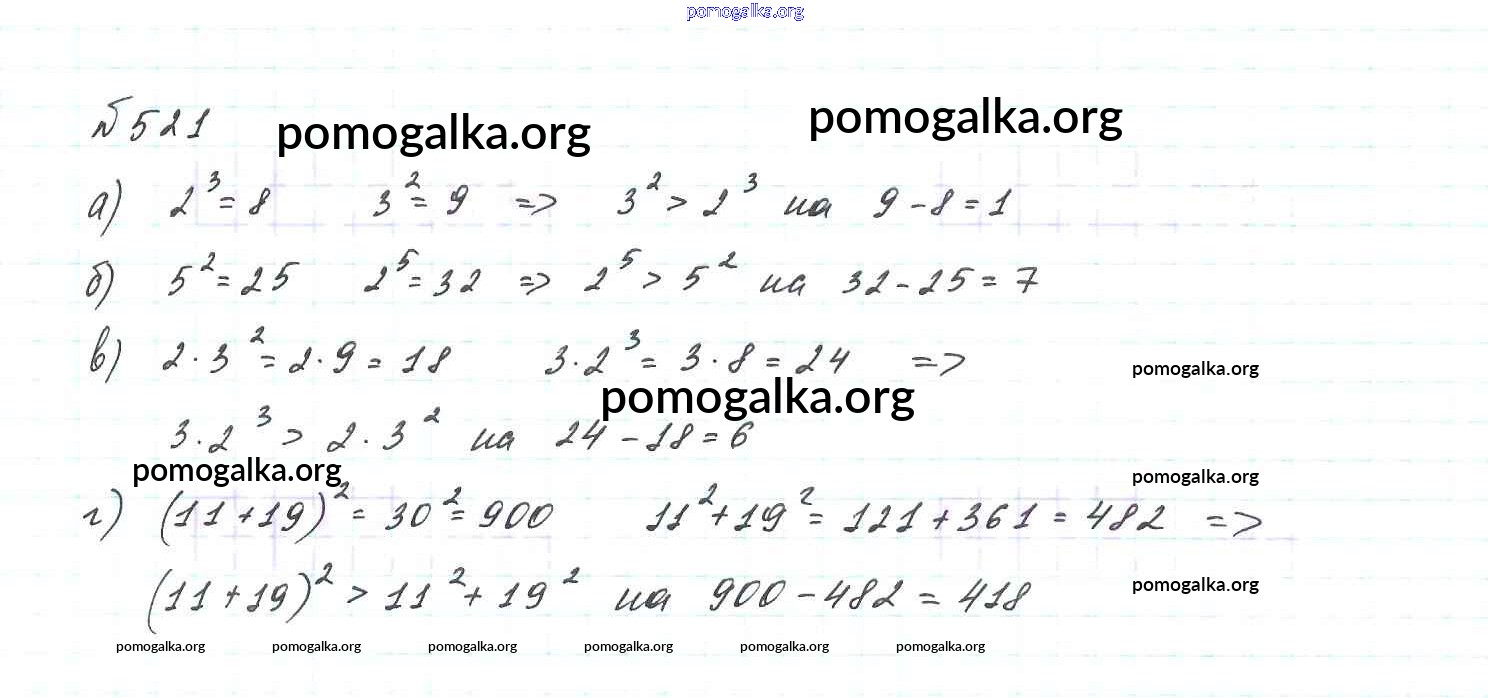 pomogalka.org
№521
pomogalka.org
pomogalka.org
а) 2³ = 8 3² = 9 => 3² > 2³ на 9 - 8 = 1
б) 5² = 25 2⁵ = 32 => 2⁵ > 5² на 32 - 25 = 7
в) 2 · 3² = 2 · 9 = 18 3 · 2³ = 3 · 8 = 24 =>
pomogalka.org
pomogalka.org
3 · 2³ > 2 · 3² на 24 - 18 = 6
pomogalka.org
pomogalka.org
г) (11 + 19)² = 30² = 900 11² + 19² = 121 + 361 = 482 =>
(11 + 19)² > 11² + 19² на 900 - 482 = 418
pomogalka.org
pomogalka.org pomogalka.org pomogalka.org pomogalka.org pomogalka.org pomogalka.org